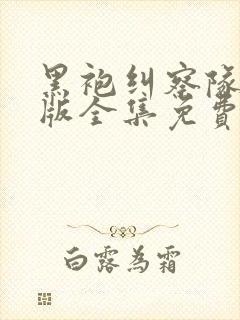 黑袍纠察队
版全集免費
白露為霜